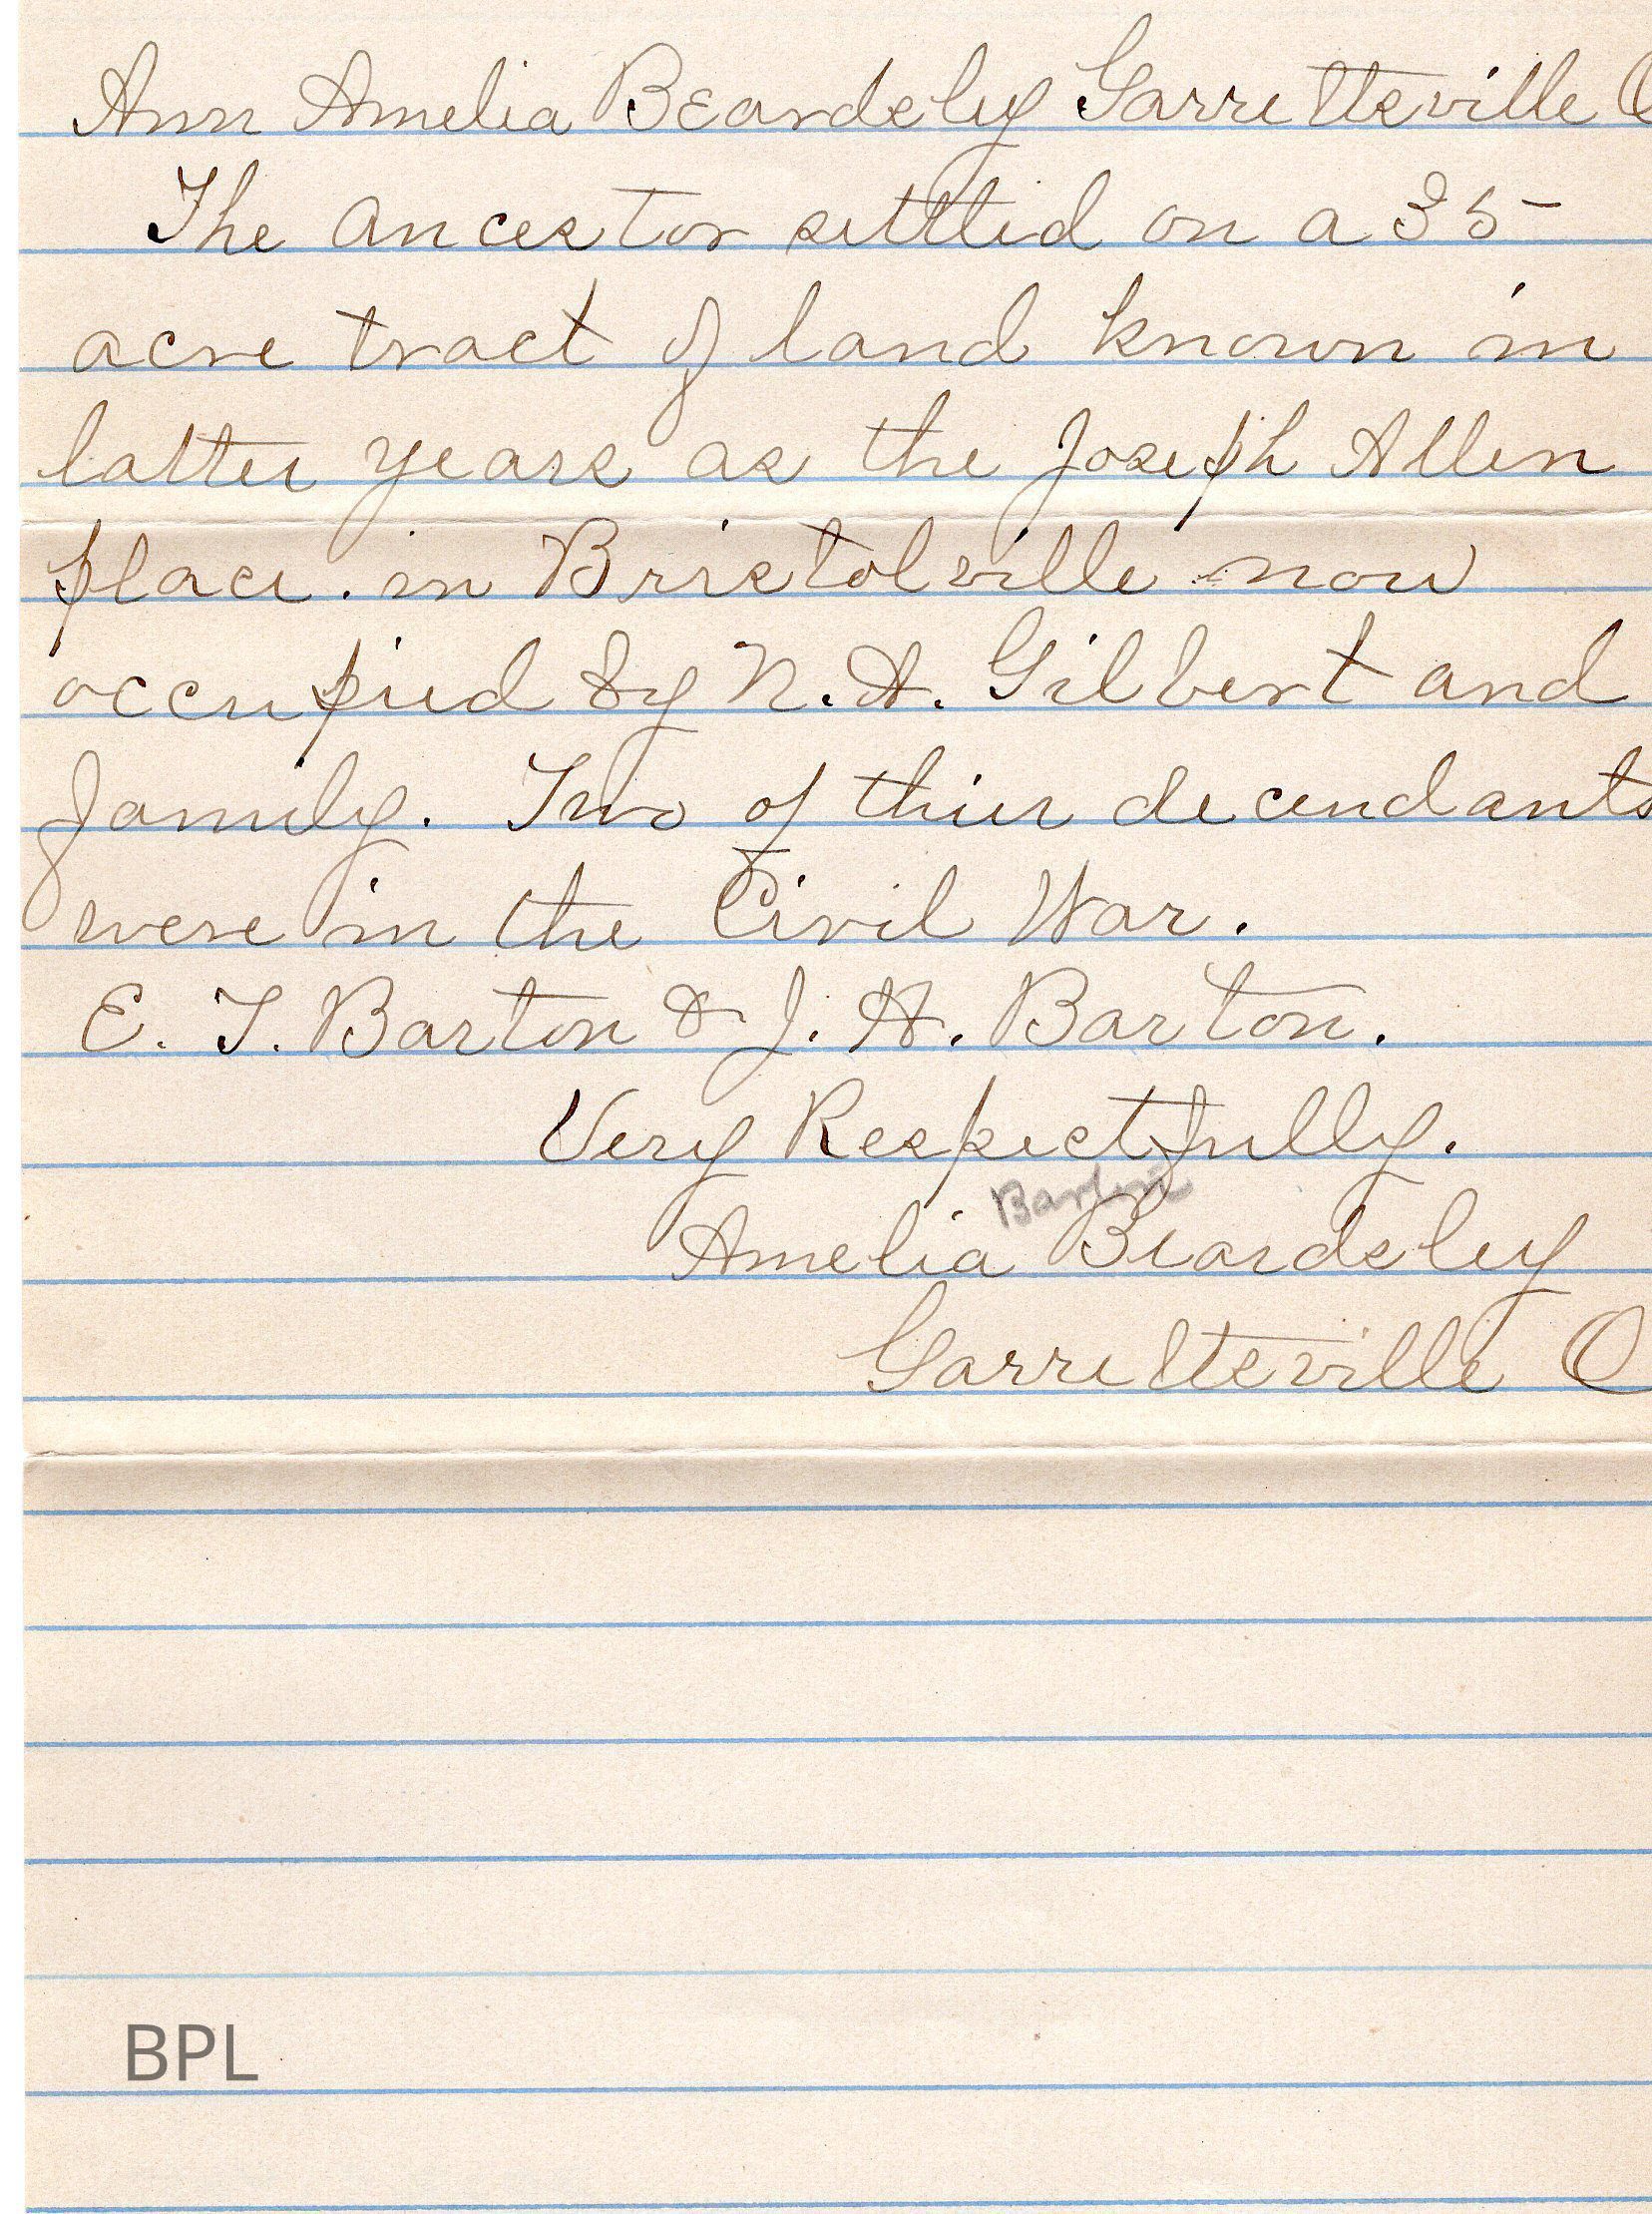 Ann Amelia Beardsley Garrettsville O
The ancestor settled on a 35
acre tract of land known in
latter years as the Joseph Allen
place. in Bristolville now
occupied by N. A. Gilbert and
family. Two of thier decendants
were in the Civil War.
E. T. Barton & J. A. Barton.
Very Respectfully.
Barton
Amelia Beardsley
Garrettsville O
BPL